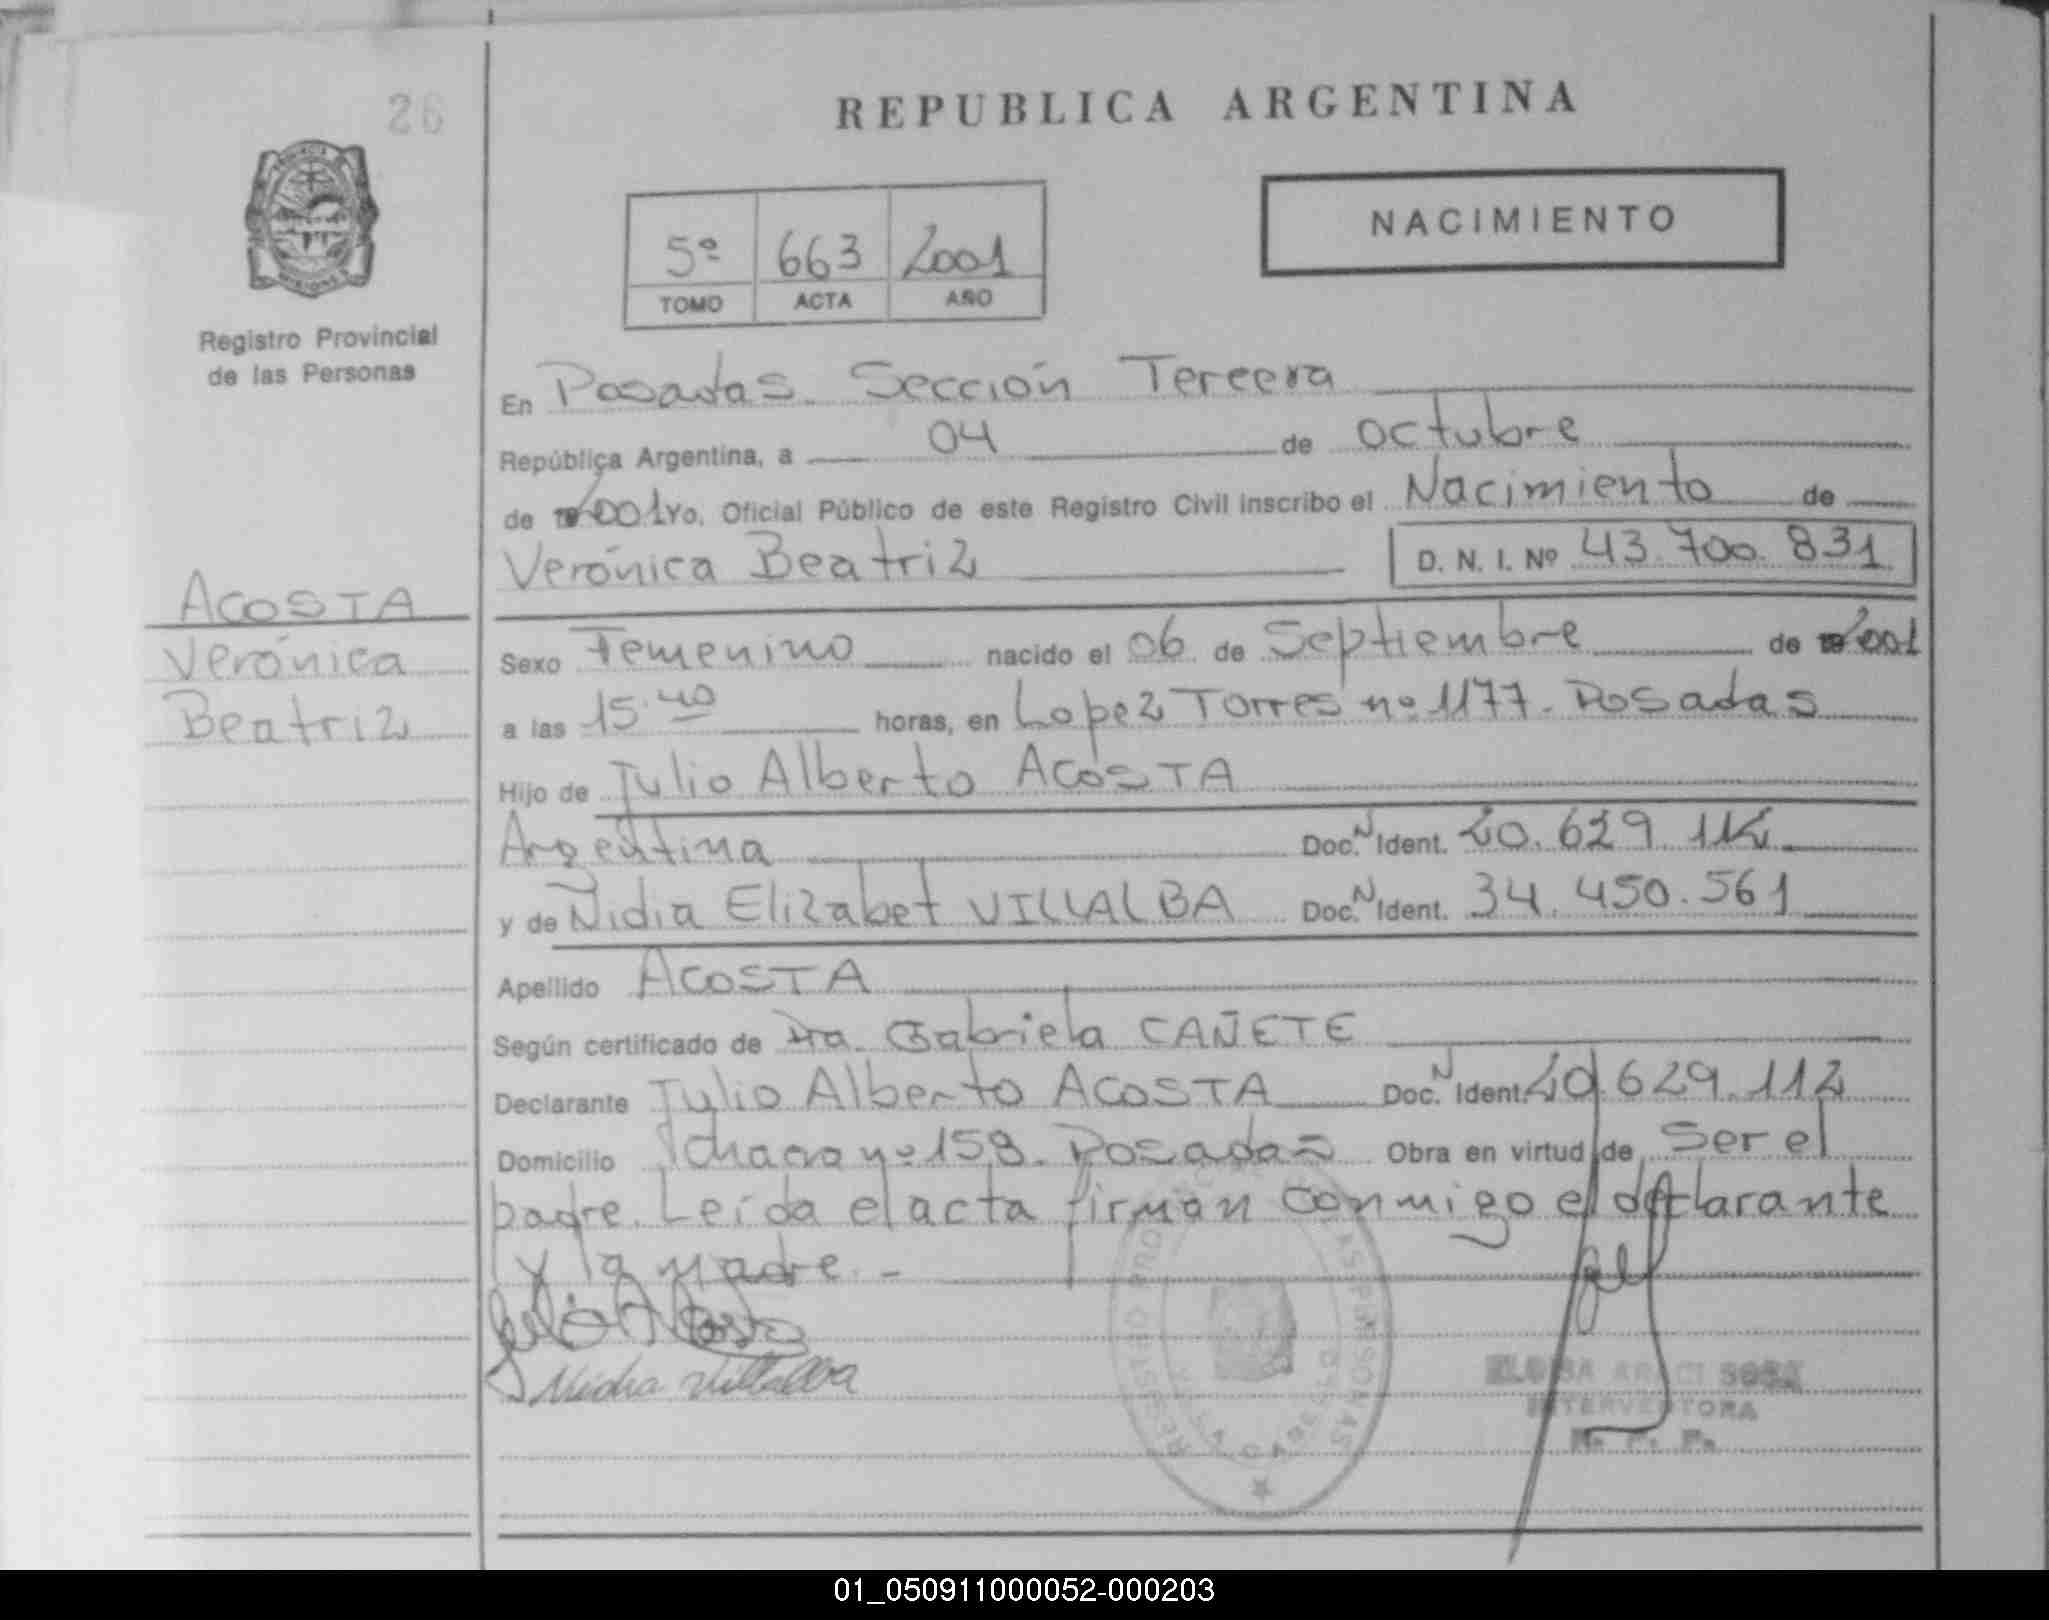 26
REPUBLICA ARGENTINA
NACIMIENTO
5º 663 2001
TOMO ACTA AÑO
Registro Provincial
de las Personas
En Posadas. Sección Tercera
República Argentina, a 04 de octubre
de 2001 Yo, Oficial Público de este Registro Civil inscribo el Nacimiento de
Verónica Beatriz D. N. I. Nº 43.700.831
ACOSTA
Verónica
Beatriz
Sexo Femenino nacido el 06 de Septiembre de 2001
a las 15.40 horas, en Lopez Torres nº 1177. Posadas
Hijo de Julio Alberto ACOSTA
Argentina Doc. N Ident. 20.629.112
y de Nidia Elizabet VILLALBA Doc. N Ident. 34.450.561
Apellido ACOSTA
Según certificado de Dra. Gabriela CAÑETE
Declarante Julio Alberto ACOSTA Doc. N Ident. 20.629.112
Domicilio nº 159. Posadas Obra en virtud de Ser el
padre. Leída el acta firman conmigo el declarante
y la madre. -
Nidia Villalba
REGISTRO PERSONAS
INTERVENTORA
01_050911000052-000203